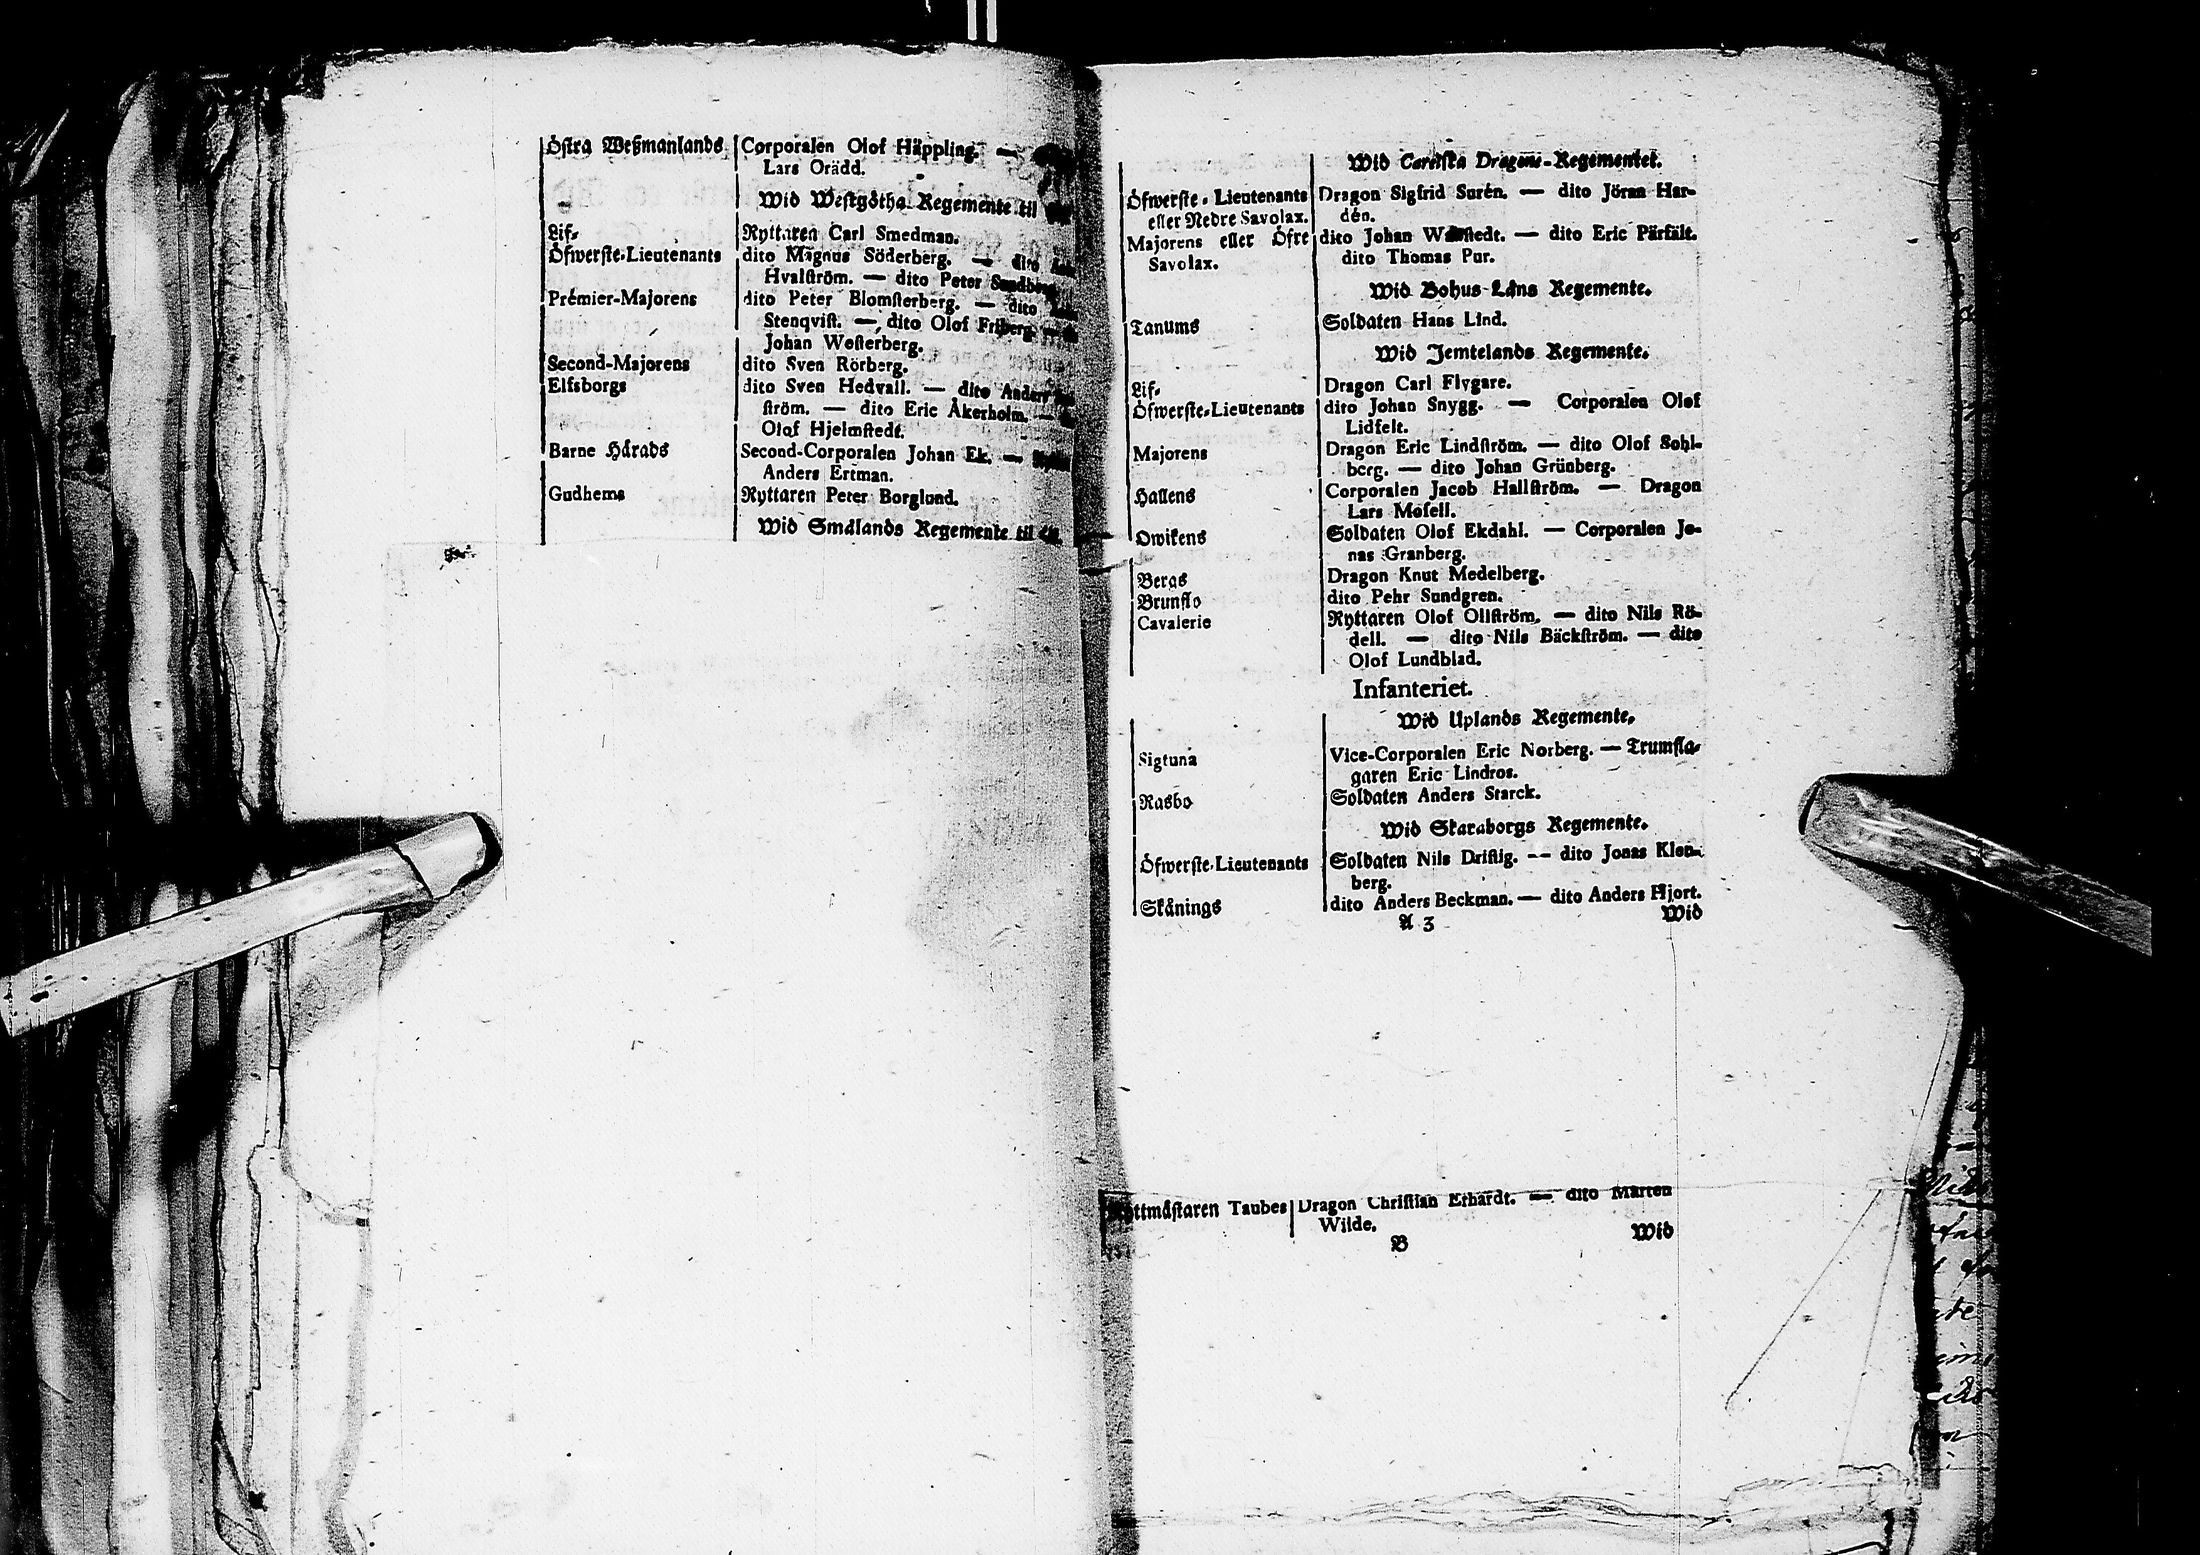 Östra Weßmanlands Corporalen Olof Häppling. —
Lars Orädd.
Wid Westgötha Regemente til
Lif- Ryttaren Carl Smedman.
Öfwerste-Lieutenants dito Magnus Söderberg. — dito
Hvalström. — dito Peter Sundberg.
Premier-Majorens dito Peter Blomsterberg. — dito
Stenqvist. — dito Olof Friberg. —
Johan Westerberg.
Second-Majorens dito Sven Rörberg.
Elfsborgs dito Sven Hedvall. — dito Anders
ström. — dito Eric Åkerholm. —
Olof Hjelmstedt.
Barne Härads Second-Corporalen Johan Ek. —
Anders Ertman.
Gudhems Ryttaren Peter Borglund.
Wid Smålands Regemente til
Wid Carelska Dragone-Regementet.
Öfwerste-Lieutenants Dragon Sigfrid Surén. — dito Jöran Har-
eller Nedre Savolax. dén.
Majorens eller Öfre dito Johan — dito Eric Pärfält.
Savolax. dito Thomas Pur.
Wid Bohus-Läns Regemente.
Tanums Soldaten Hans Lind.
Wid Jemtelands Regemente.
Lif- Dragon Carl Flygare.
Öfwerste-Lieutenants dito Johan Snygg. — Corporalen Olof
Lidfelt.
Majorens Dragon Eric Lindström. — dito Olof Sohl-
berg. — dito Johan Grünberg.
Hallens Corporalen Jacob Hallström. — Dragon
Lars Mosell.
Owikens Soldaten Olof Ekdahl. — Corporalen Jo-
nas Granberg.
Bergs Dragon Knut Medelberg.
Brunflo dito Pehr Sundgren.
Cavalerie Ryttaren Olof Ollström. — dito Nils Rö-
dell. — dito Nils Bäckström. — dito
Olof Lundblad.
Infanteriet.
Wid Uplands Regemente.
Sigtuna Vice-Corporalen Eric Norberg. — Trumsla-
garen Eric Lindros.
Rasbo Soldaten Anders Starck.
Wid Skaraborgs Regemente.
Öfwerste-Lieutenants Soldaten Nils Driftig. — dito Jonas Klen-
berg.
Skånings dito Anders Beckman. — dito Anders Hjort.
A 3 Wid
Ryttmästaren Taubes Dragon Christian Erhardt. — dito Mårten
Wilde.
B Wid